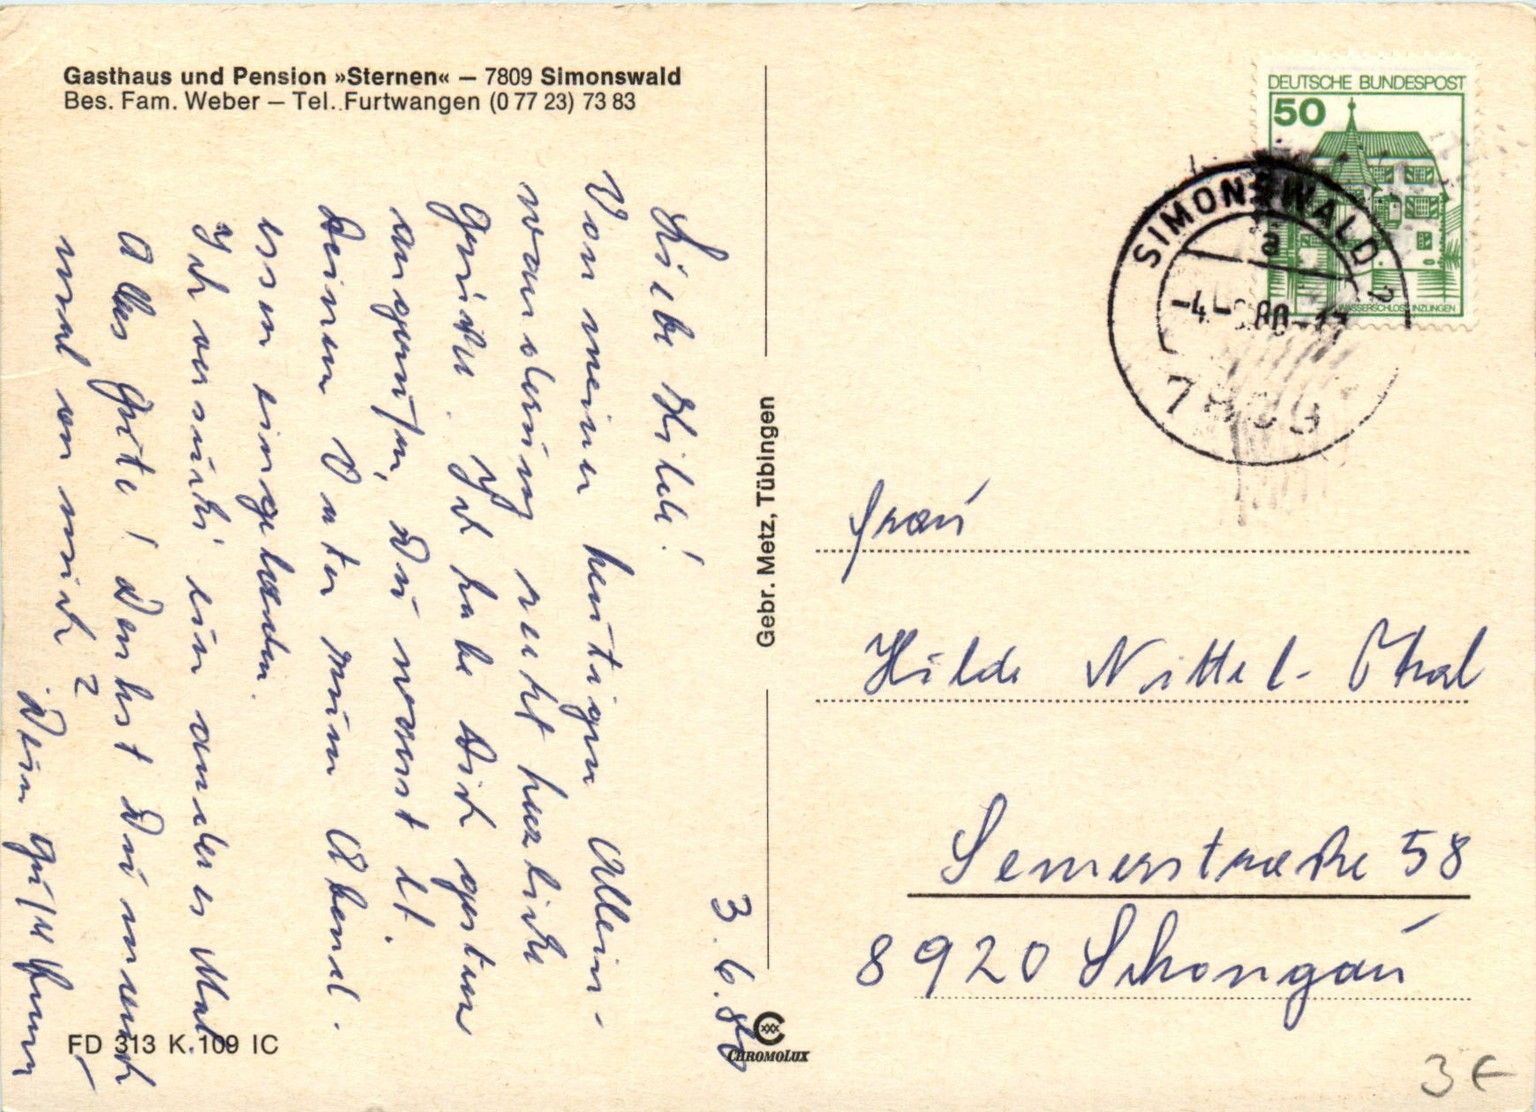 Gasthaus und Pension »Sternen« – 7809 Simonswald
Bes. Fam. Weber – Tel. Furtwangen (0 77 23) 73 83
3.6.80
Liebe Hilde!
Von meiner heutigen Allein-
wanderung recht herzliche
Grüße. Ich habe Dich gestern
angerufen, Du warst lt.
Deinem Vater zum Abend-
essen eingeladen.
Ich versuche ein anderes Mal.
Alles Gute! Denkst Du manch
mal an mich?
Dein
FD 313 K.109 IC
Gebr. Metz, Tübingen
CHROMOLUX
DEUTSCHE BUNDESPOST
50
WASSERSCHLOSS INZLINGEN
SIMONSWALD 2
a
-4.-.80-17
7809
Frau
Hilde Nittel-Othal
Semerstraße 58
8920 Schongau
3 €